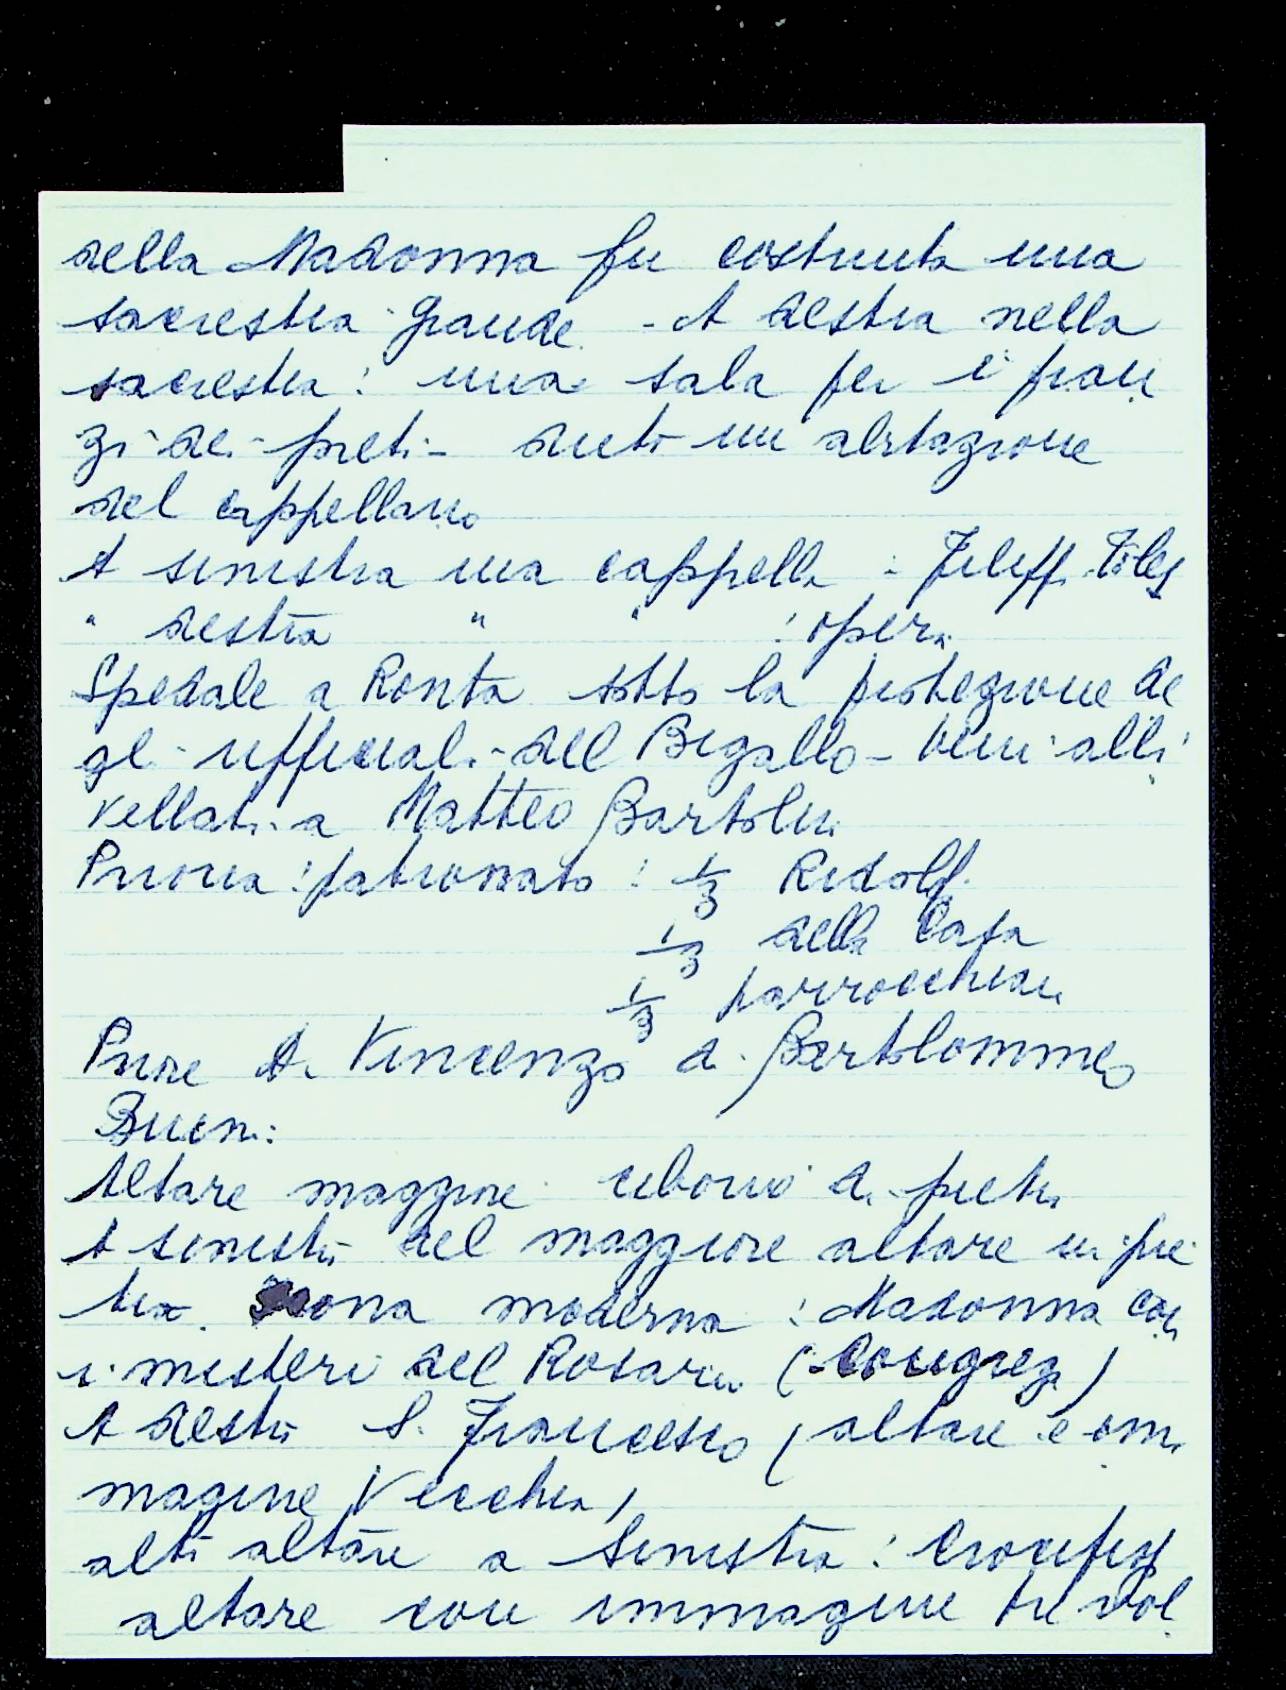 della Madonna fu costruita una
sacrestia grande - A destra nella
sacrestia: una sala per i pran
zi dei preti - dietro un abitazione
del cappellano
A sinistra una cappella :
" destra " " : opera
Spedale a Ronta sotto la protezione de
gli ufficiali del Bigallo - beni alli
vellati a Matteo Bartolini
Prioria : patronato : 1/3 Ridolfi
1/3 della Casa
1/3 parrocchiani
Priore D. Vincenzo di Bartolommeo
Buoni:
Altare maggiore ciborio di pietra
A sinistra del maggiore altare in pie
tra. Icona moderna : Madonna con
i misteri del Rosario (Congreg)
A destra S. Francesco (altare e im
magine vecchia)
altro altare a sinistra : Crocifisso
altare con immagine